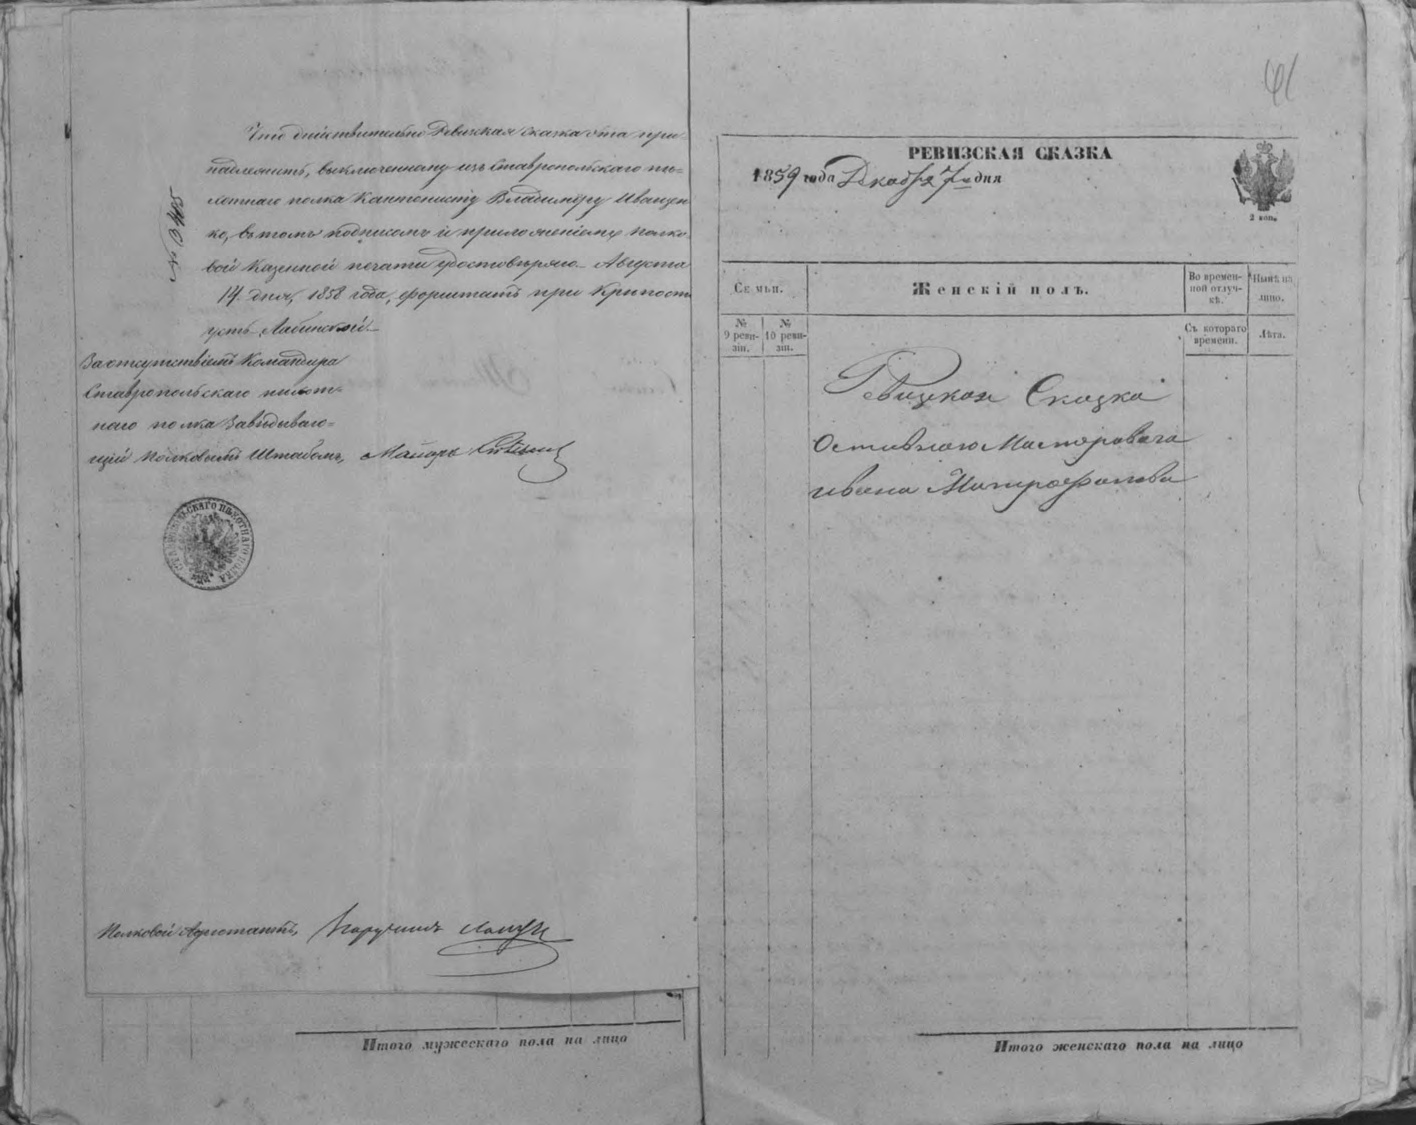 № 3445
Что дѣйствительно Ревизская сказка эта при-
надлежитъ, выключенному изъ Ставропольскаго пѣ=
хотнаго полка Кантонисту Владимѣру Иванен
ко, въ томъ подписомъ и приложеніемъ полко
вой Казенной печати удостовѣряю. Августа
14 дня, 1858 года, форштатъ при Крѣпости
усть-Лабинской.
За отсутствіемъ Командира
Ставропольскаго пѣхот-
наго полка Завѣдываю=
щій Полковымъ Штабомъ, Маіоръ
СТАВРОПОЛЬСКАГО ПѢХОТНАГО ПОЛКА
Полковой Адъютантъ, Поручикъ
Итого мужескаго пола на лицо
41
РЕВИЗСКАЯ СКАЗКА
1859 года Декабря 7го дня
2 коп.
Семьи.
Женскій полъ.
Во времен-
ной отлуч-
кѣ.
Нынѣ на
лицо.
№
9 реви-
зіи.
№
10 реви-
зіи.
Съ котораго
времени.
Лѣта.
Ревизкая Сказка
Мастероваго
ивана Митрофанова
Итого женскаго пола на лицо